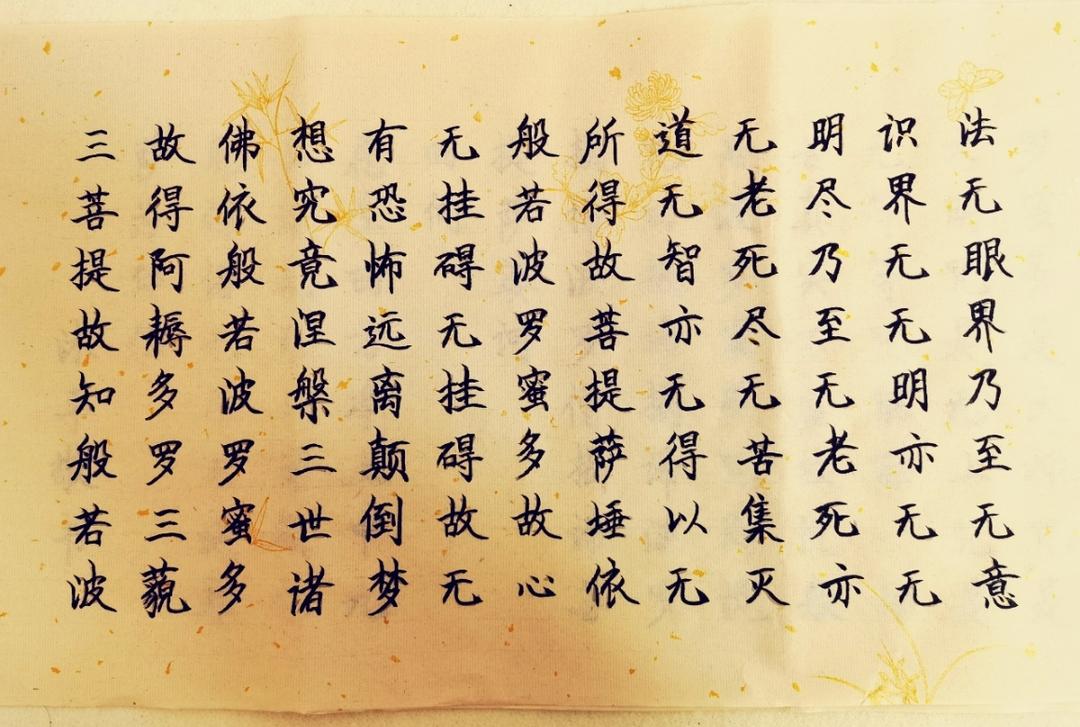 法无眼界乃至无意
识界无无明亦无无
明尽乃至无老死亦
无老死尽无苦集灭
道无智亦无得以无
所得故菩提萨埵依
般若波罗蜜多故心
无挂碍无挂碍故无
有恐怖远离颠倒梦
想究竟涅槃三世诸
佛依般若波罗蜜多
故得阿耨多罗三藐
三菩提故知般若波